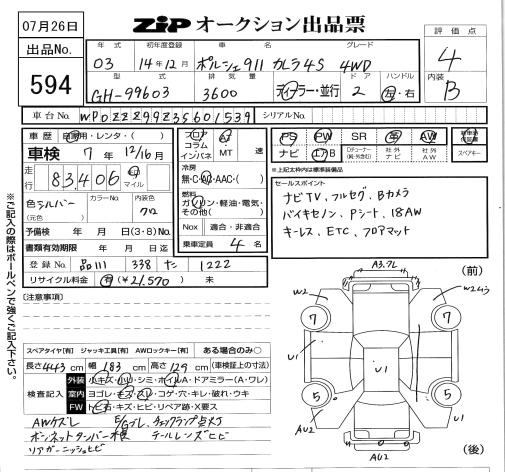 07月26日
ZIP オークション出品票
出品No.
594
評価点
4
内装
B
年式 初年度登録 車名 グレード
03 14年12月 ポルシェ911 カレラ4S 4WD
型式 排気量 ドア ハンドル
GH-99603 3600 ディーラー・並行 2 左・右
車台No. シリアルNo.
車歴 自家用・レンタ・( )
車検 7年 12/16月
走行 83,406 キロ マイル
フロア コラム インパネ AT MT 速
冷房
無・C・AC・AAC・( )
燃料
ガソリン・軽油・電気・その他( )
Nox 適合・非適合
乗車定員 4名
色 シルバー
(元色)
カラーNo.
内装色
クロ
予備検 年 月 日(3・8)No.
書類有効期限 年 月 日迄
登録No. 品川 338 た 1222
リサイクル料金 有(¥21,570) 未
PS PW SR 革 AW
ナビ エアB 社外ナビ 社外AW
スペアキー
*上記太枠内は装備標準
セールスポイント
ナビTV、フルセグ、Bカメラ
バイキセノン、Pシート、18AW
キーレス、ETC、フロアマット
※ご記入の際はボールペンで強くご記入下さい。
[注意事項]
スペアタイヤ[有] ジャッキ工具[有] AWロックキー[有] ある場合のみ○
長さ443cm 幅183cm 高さ129cm (車検証の寸法)
検査記入
外装 小キズ・凹・シミ・ホイルA・ドアミラー(A・ワレ)
室内 ヨゴレ・キズ・スレ・コゲ・穴・キレ・破れ・ウキ
FW トビ石・キズ・ヒビ・リペア跡・X要ス
AWケズレ E/Gブレ、チェックランプ点灯
ボンネットダンパー不良 テールレンズヒビ
リアガーニッシュヒビ
(前)
A3.フレ
W2
7
7
U1
U1
U1
5
5
AU2
AU2
AU2
(後)